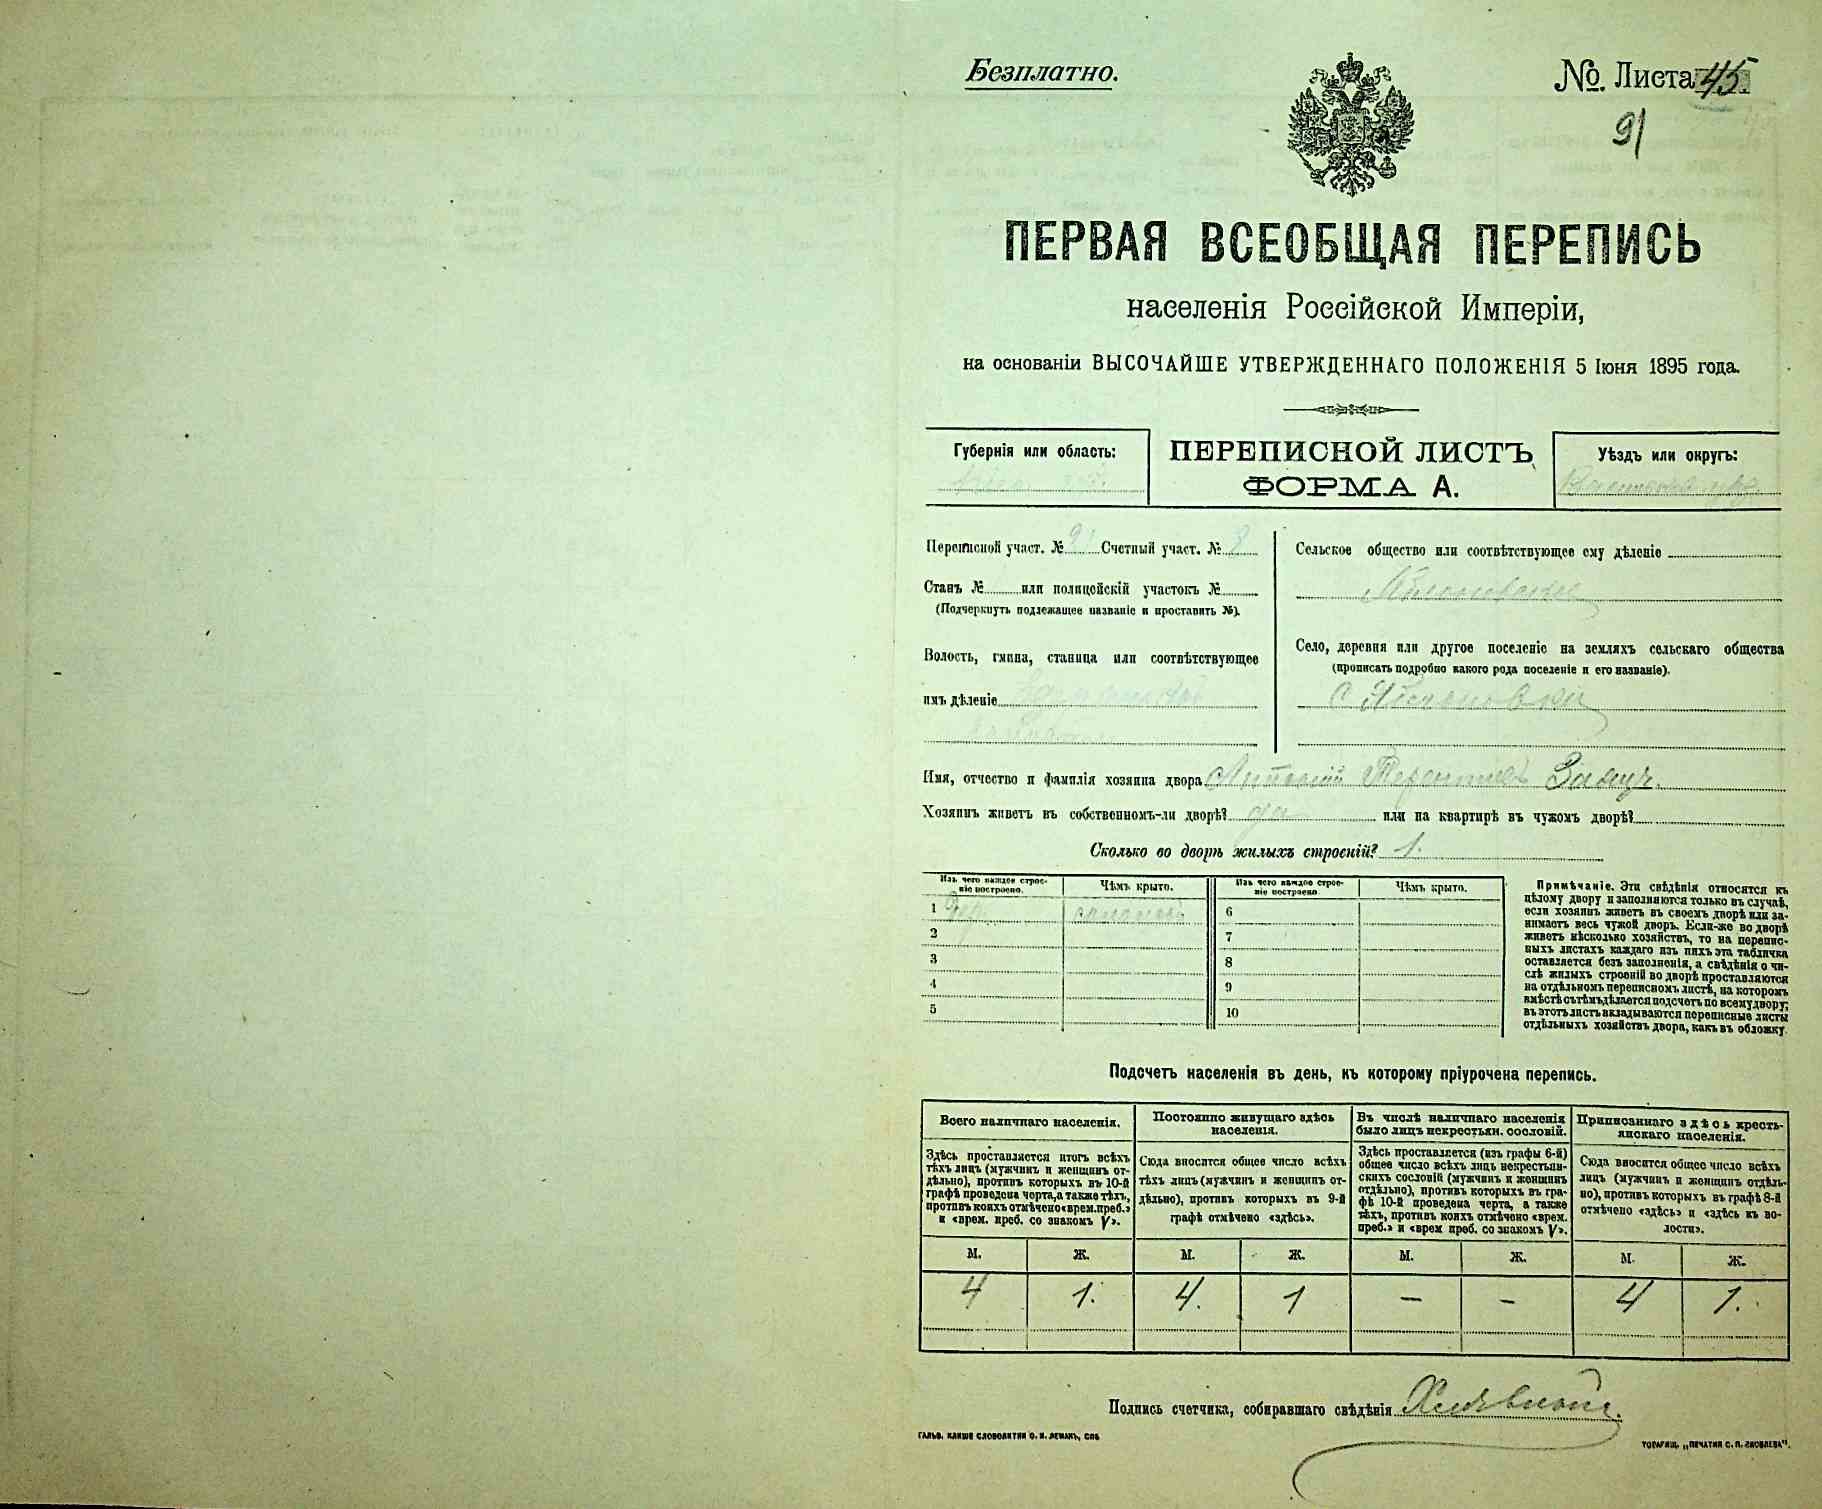 Безплатно.
№. Листа 45.
91
ПЕРВАЯ ВСЕОБЩАЯ ПЕРЕПИСЬ
населенія Россійской Имперіи,
на основаніи ВЫСОЧАЙШЕ УТВЕРЖДЕННАГО ПОЛОЖЕНІЯ 5 Іюня 1895 года.
Губернія или область:
ПЕРЕПИСНОЙ ЛИСТЪ
ФОРМА А.
Уѣздъ или округъ:
Переписной участ. № 9 Счетный участ. № 8
Станъ № или полицейскій участокъ №
(Подчеркнуть подлежащее названіе и проставить №).
Волость, гмина, станица или соотвѣтствующее
имъ дѣленіе
Сельское общество или соотвѣтствующее ему дѣленіе
Село, деревня или другое поселеніе на земляхъ сельскаго общества
(прописать подробно какого рода поселеніе и его названіе).
Имя, отчество и фамилія хозяина двора Антоній Терентіевъ Заяцъ.
Хозяинъ живетъ въ собственномъ-ли дворѣ? да или на квартирѣ въ чужомъ дворѣ?
Сколько во дворѣ жилыхъ строеній? 1.
Изъ чего каждое строе-
ніе построено.
Чѣмъ крыто.
Изъ чего каждое строе-
ніе построено
Чѣмъ крыто.
1
2
3
4
5
6
7
8
9
10
Примѣчаніе. Эти свѣдѣнія относятся къ
цѣлому двору и заполняются только въ случаѣ,
если хозяинъ живетъ въ своемъ дворѣ или за-
нимаетъ весь чужой дворъ. Если-же во дворѣ
живетъ нѣсколько хозяйствъ, то на перепис-
ныхъ листахъ каждаго изъ нихъ эта табличка
оставляется безъ заполненія, а свѣдѣнія о чи-
слѣ жилыхъ строеній во дворѣ проставляются
на отдѣльномъ переписномъ листѣ, на которомъ
вмѣстѣ съ тѣмъ дѣлается подсчетъ по всему двору;
въ этотъ листъ вкладываются переписные листы
отдѣльныхъ хозяйствъ двора, какъ въ обложку.
Подсчетъ населенія въ день, къ которому пріурочена перепись.
Всего наличнаго населенія.
Здѣсь проставляется итогъ всѣхъ
тѣхъ лицъ (мужчинъ и женщинъ от-
дѣльно), противъ которыхъ въ 10-й
графѣ проведена черта, а также тѣхъ,
противъ коихъ отмѣчено «врем. преб.»
и «врем. преб. со знакомъ V».
Постоянно живущаго здѣсь
населенія.
Сюда вносится общее число всѣхъ
тѣхъ лицъ (мужчинъ и женщинъ от-
дѣльно), противъ которыхъ въ 9-й
графѣ отмѣчено «здѣсь».
Въ числѣ наличнаго населенія
было лицъ некрестьян. сословій.
Здѣсь проставляется (изъ графы 6-й)
общее число всѣхъ лицъ некрестьян-
скихъ сословій (мужчинъ и женщинъ
отдѣльно), противъ которыхъ въ гра-
фѣ 10-й проведена черта, а также
тѣхъ, противъ коихъ отмѣчено «врем.
преб.» и «врем преб. со знакомъ V».
Приписаннаго здѣсь кресть-
янскаго населенія.
Сюда вносится общее число всѣхъ
лицъ (мужчинъ и женщинъ отдѣль-
но), противъ которыхъ въ графѣ 8-й
отмѣчено «здѣсь» и «здѣсь къ во-
лости».
М. Ж. М. Ж. М. Ж. М. Ж.
4 1. 4. 1 — — 4 1.
Подпись счетчика, собиравшаго свѣдѣнія
ГАЛЬВ. КЛИШЕ СЛОВОЛИТНИ О. И. ЛЕМАНЪ, СПБ
ТОВАРИЩ. „ПЕЧАТНЯ С. П. ЯКОВЛЕВА".